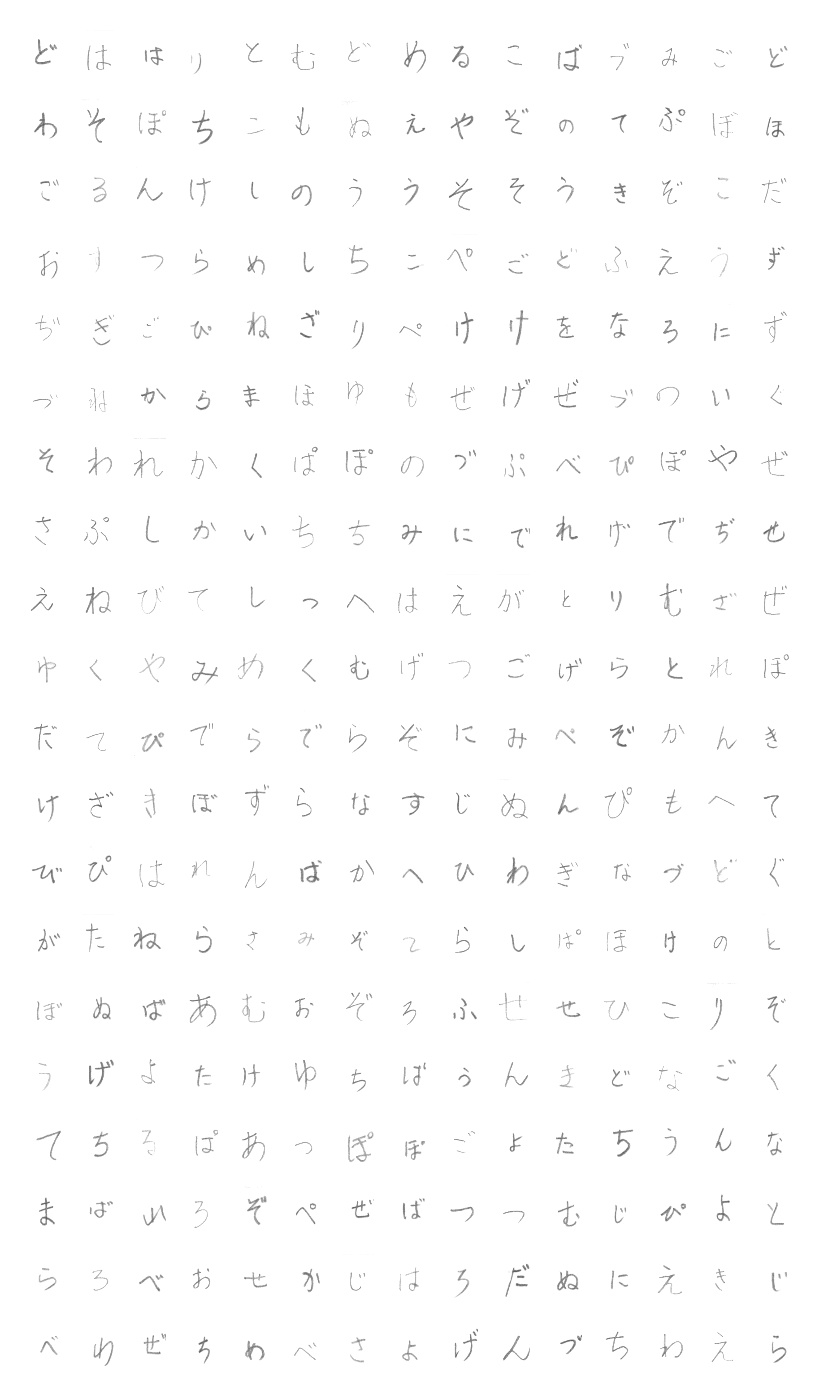 どははりとむどめるこばづみごど
わそぽちこもぬえやぞのてぷぼほ
ごるんけしのううそそうきぞこだ
おすつらめしちこぺごどふえうず
ぢぎごぴねざりぺけけをなろにず
づねからまほゆもぜげぜづついく
そわれかくぱぽのづぷべぴぽやぜ
さぷしかいちちみにでれげでぢせ
えねびてしつへはえがとりむざぜ
ゆくやみめくむげつごげらとれぽ
だてぴでらでらぞにみぺぞかんき
けざきぼずらなすじぬんぴもへて
びぴはれんばかへひわぎなづどぐ
がたねらさみぞてらしぱほけのと
ぼぬばあむおぞろふせせひこりぞ
うげよたけゆちばうんきどなごく
てちるぱあつぽぽごよたちうんな
まばいろぞぺぜばつつむじぴよと
らろべおせかじはろだぬにえきじ
べわぜちめべさよげんづちわえら